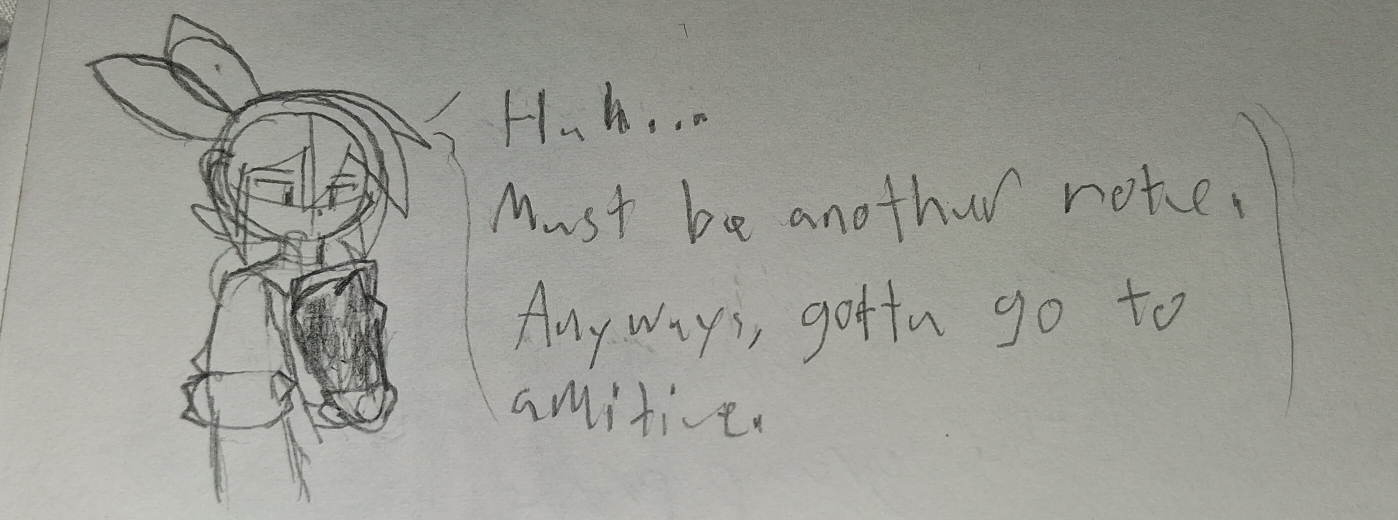 Huh...
Must be another note.
Anyways, gotta go to
amitie.